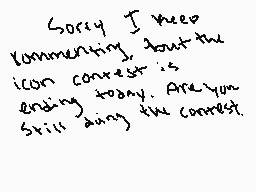 Sorry I keep
commenting, but the
icon contest is
ending today. Are you
still doing the contest.